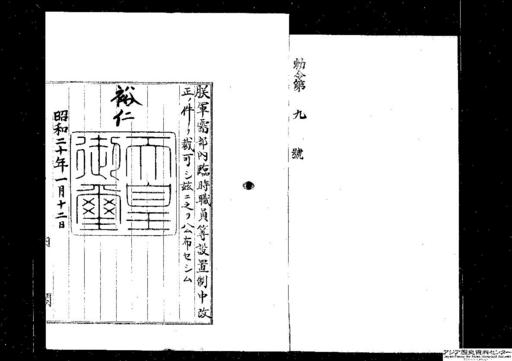 勅令第九號
朕軍需部內臨時職員等設置制中改
正ノ件ヲ裁可シ玆ニ之ヲ公布セシム
裕仁
天皇御璽
昭和二十年一月十二日
內閣
アジア歴史資料センター